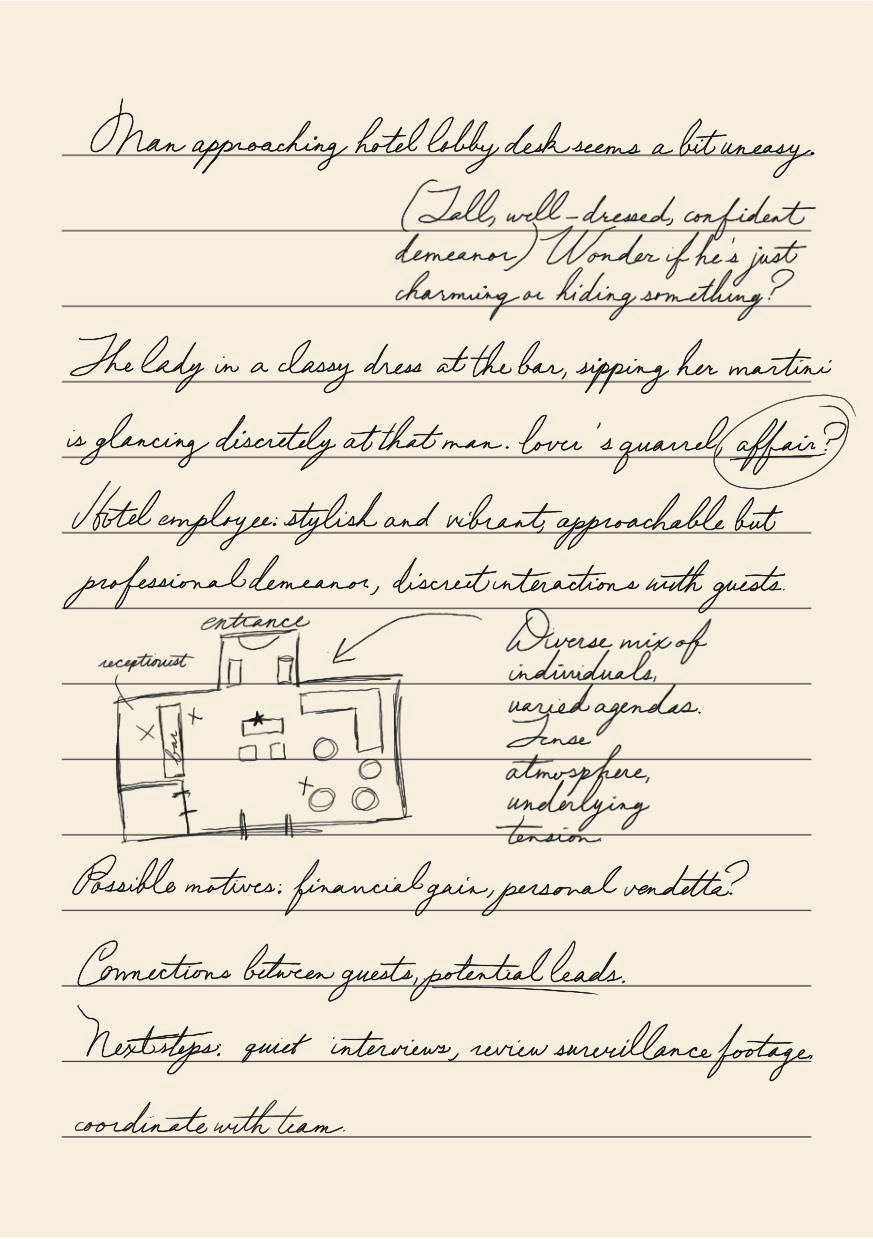 Man approaching hotel lobby desk seems a bit uneasy.
(Tall, well-dressed, confident
demeanor) Wonder if he's just
charming or hiding something?
The lady in a classy dress at the bar, sipping her martini
is glancing discretely at that man. lover's quarrel, affair?
Hotel employee: stylish and vibrant, approachable but
professional demeanor, discreet interactions with guests.
entrance
receptionist
bar
Diverse mix of
individuals,
varied agendas.
Tense
atmosphere,
underlying
tension.
Possible motives: financial gain, personal vendetta?
Connections between guests, potential leads.
Next steps: quiet interviews, review surveillance footage,
coordinate with team.